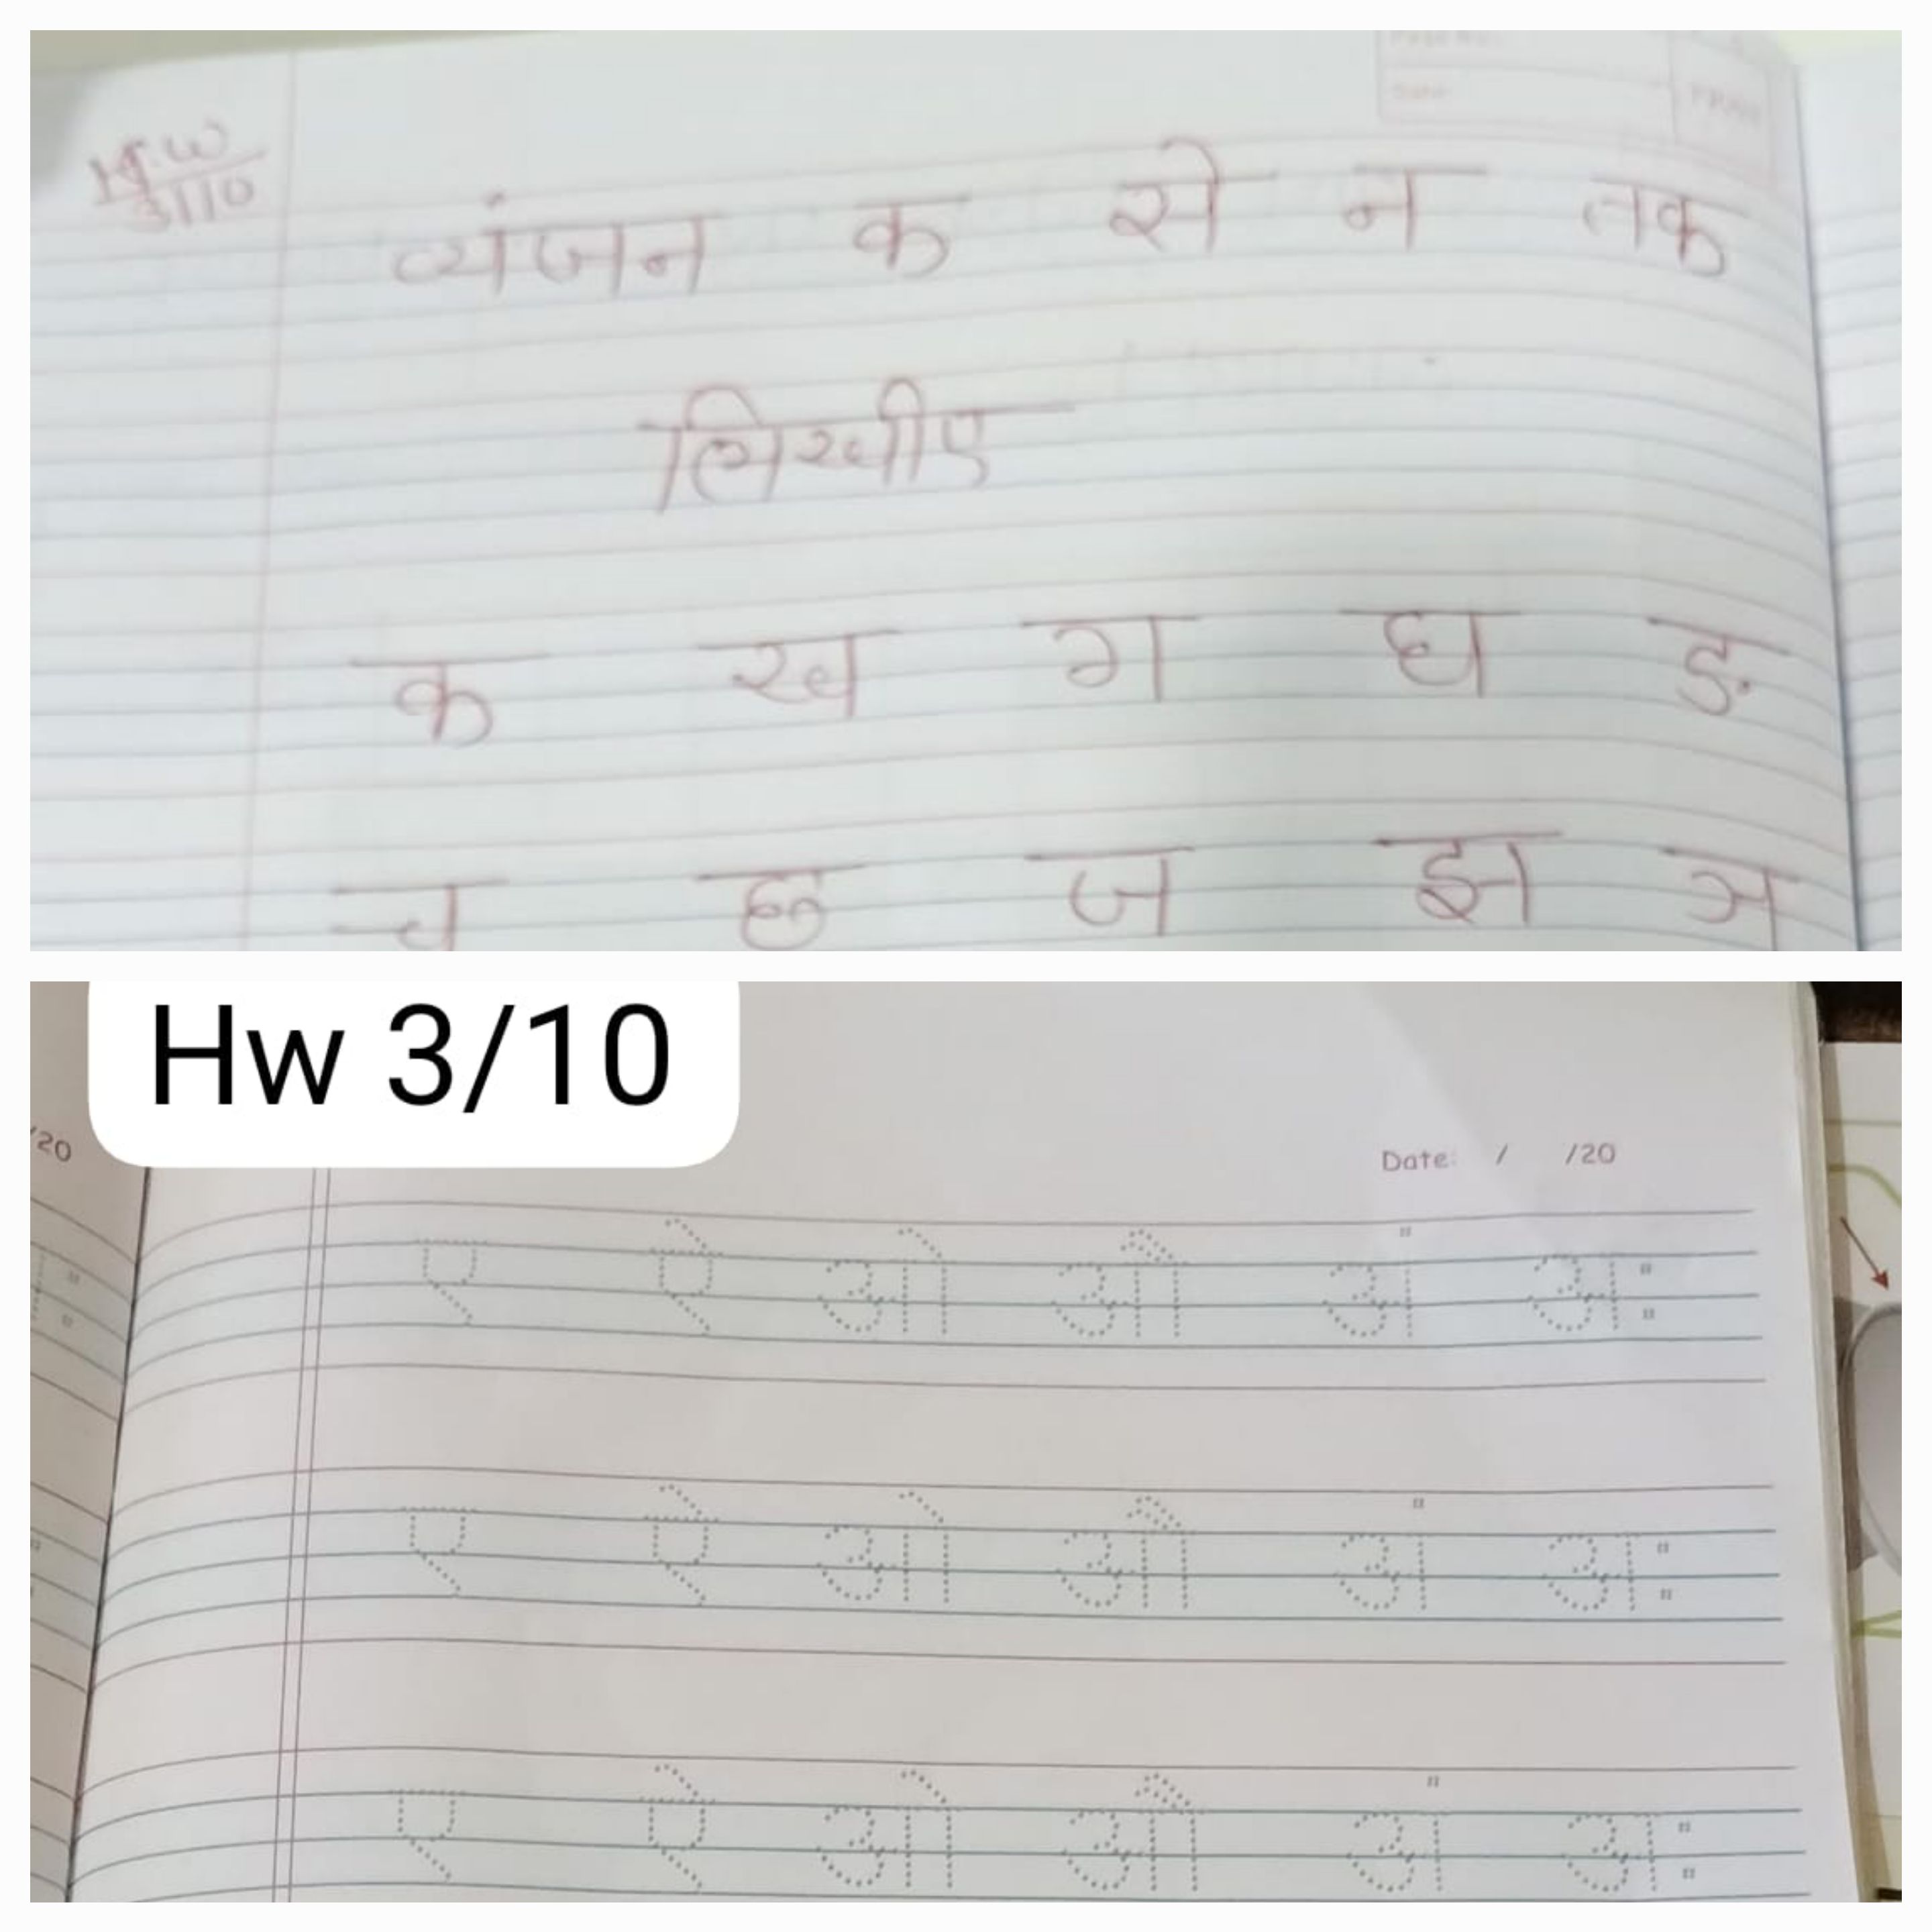 H.W
3/10
व्यंजन क से न तक
लिखीए
क ख ग घ ङ
च छ ज झ ञ
Hw 3/10
/20
Date: / /20
ए ऐ ओ औ अं अः
ए ऐ ओ औ अं अः
ए ऐ ओ औ अं अः